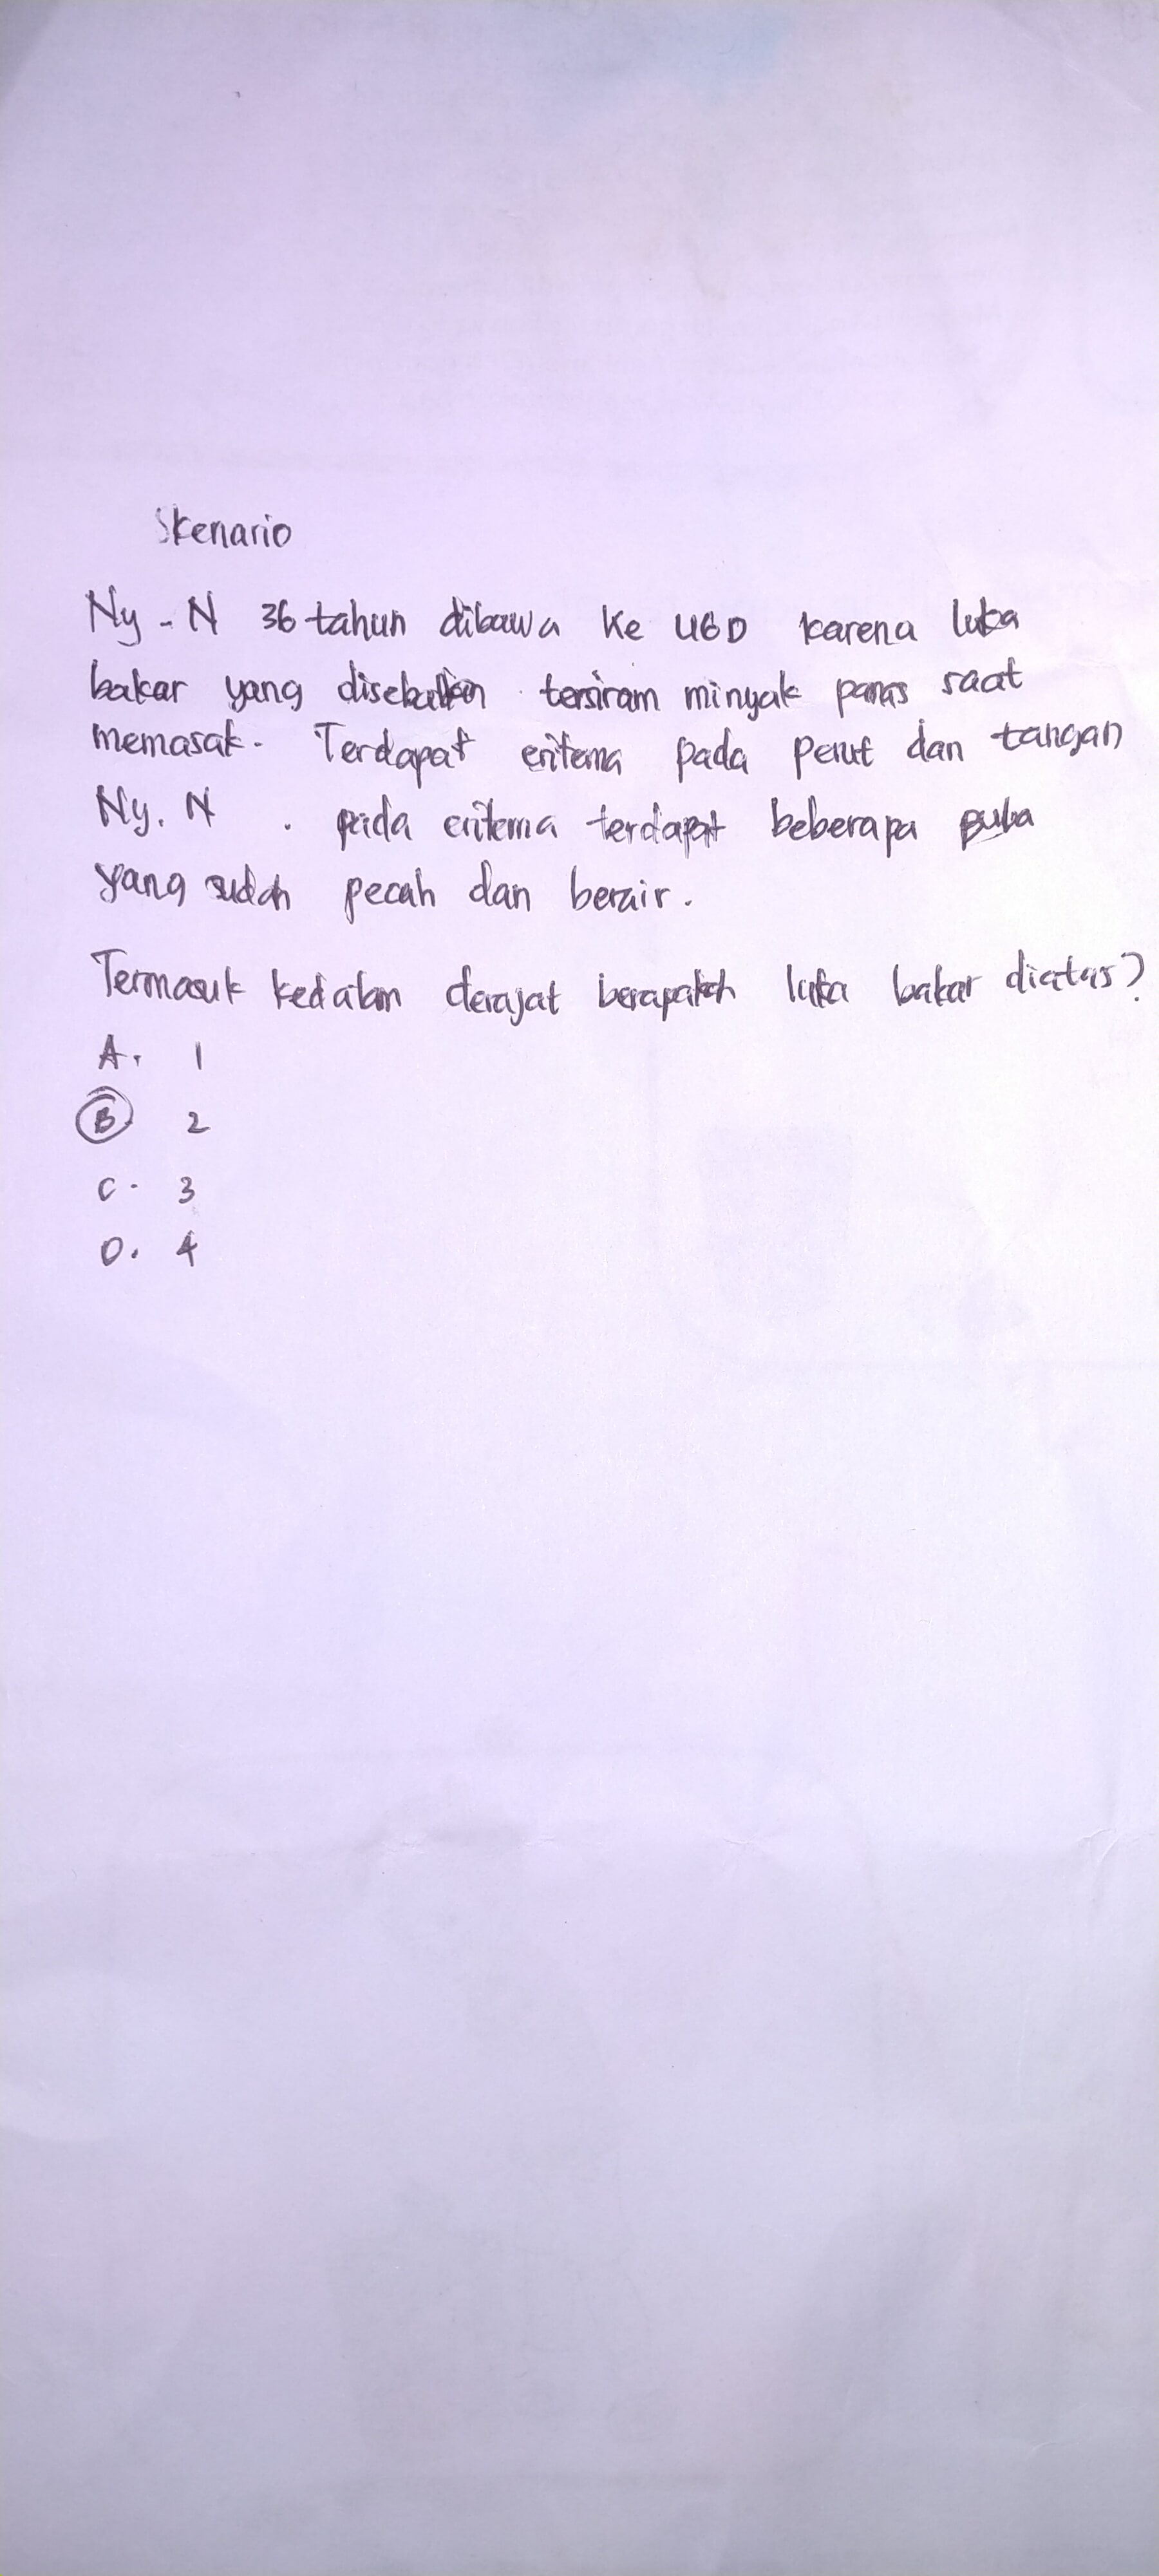 Skenario
Ny - N 36 tahun dibawa ke UGD karena luka
bakar yang disebabkan tersiram minyak panas saat
memasak. Terdapat eritema pada perut dan tangan
Ny. N . pada eritema terdapat beberapa bula
yang sudah pecah dan berair.
Termasuk kedalam derajat berapakah luka bakar diatas?
A. 1
B 2
C. 3
D. 4